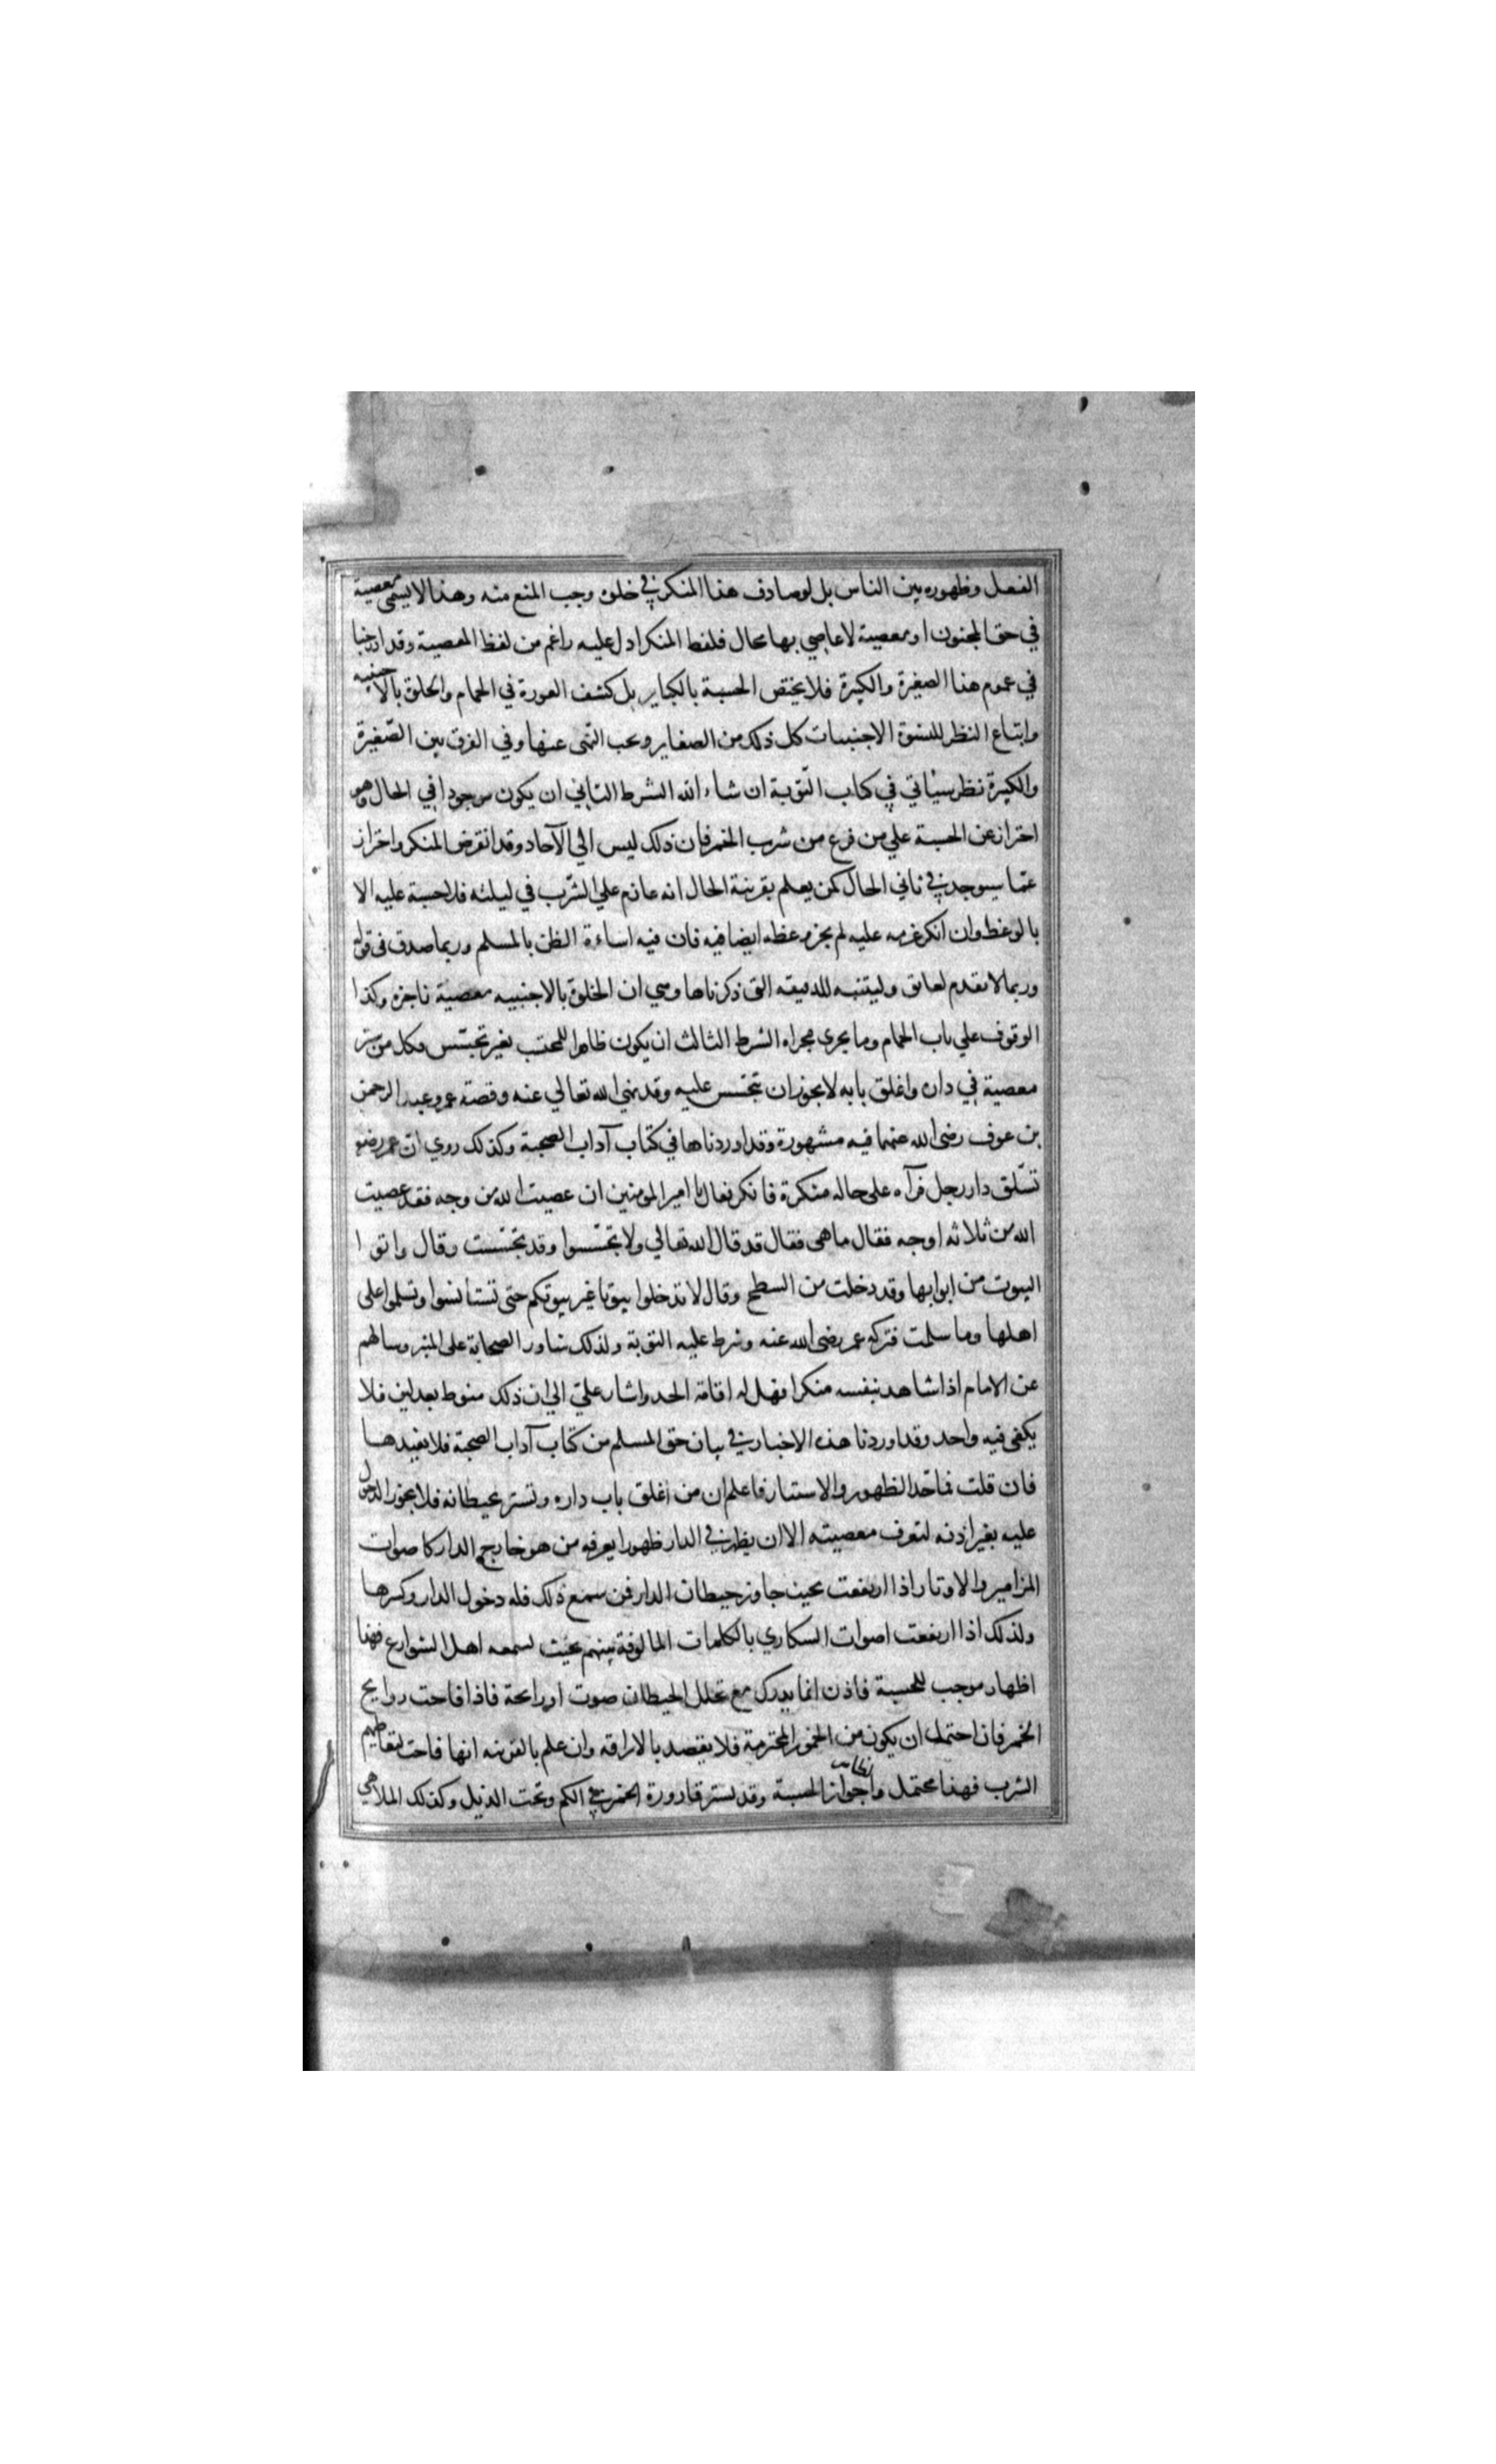 الفعل وظهوره بين الناس بل لو صادف هذا المنكر في خلوة وجب المنع منه وهذا لا يسمى معصية
في حق المجنون او معصية لا عاصي بها محال فلفظ المنكر ادل عليه راعم من لفظ المعصية وقد ادرجنا
في عموم هذا الصغيرة والكبيرة فلا يختص الحسبة بالكباير بل كشف العورة في الحمام والخلوة بالاجنبيه
واتباع النظر للنسوة الاجنبيات كل ذلك من الصغاير ويجب النهى عنها وفي الفرق بين الصّغيرة
والكبيرة نظر سئاتي في كتاب التّوبة ان شاء الله الشرط الثاني ان يكون موجودا في الحال وهو
احتراز عن الحسبة علي من فرغ من شرب الخمر فان ذلك ليس الي الآحاد وقد انقرض المنكر واحتراز
عمّا سيوجد في ثاني الحال كمن يعلم بقرينة الحال انه عازم علي الشّرب في ليلته فلا حسبة عليه الا
بالوعظ وان انكر عزمه عليه لم يجز وعظه ايضا فيه فان فيه اساءة الظن بالمسلم وربما صدق فى قوله
وربما لا يقدم لعايق وليتنبه للدقيقه التى ذكرناها وهي ان الخلوة بالاجنبيه معصية ناجزه وكذا
الوقوف علي باب الحمام وما يجرى مجراه الشرط الثالث ان يكون ظاهرا للمحتسب بغير تجسّس فكل من ستر
معصية في داره واغلق بابه لا يجوز ان تتجسس عليه وقد نهي الله تعالي عنه وقصة عمر وعبد الرحمن
بن عوف رضى الله عنهما فيه مشهورة وقد اوردناها في كتاب آداب الصحبة وكذلك روي انّ عمر رضو
تسلّق دار رجل فرآه على حاله منكرة فانكر فقال يا امير المؤمنين ان عصيت الله من وجه فقد عصيت
الله من ثلاثه اوجه فقال ما هى فقال قد قال الله تعالي ولا تجسّسوا وقد تجسّست وقال واتوا
البيوت من ابوابها وقد دخلت من السطح وقال لا تدخلوا بيوتا غير بيوتكم حتى تستانسوا وتسلموا على
اهلها وما سلمت فتركه عمر رضى الله عنه وشرط عليه التوبة ولذلك شاور الصحابة على المنبر وسالهم
عن الامام اذا شاهد بنفسه منكرا فهل له اقامة الحد واشار عليّ الي ان ذلك منوط بعدلين فلا
يكفى فيه واحد وقد اوردنا هذه الاخبار في بيان حق المسلم من كتاب آداب الصحبة فلا نعيدها
فان قلت فما حدّ الظهور والاستتار فاعلم ان من اغلق باب داره وتستر بحيطانه فلا يجوز الدخول
عليه بغير اذنه لتعرف معصيته الا ان يظهر في الدار ظهورا يعرفه من هو خارج الدار كاصوات
المزامير والاوتار اذا ارتفعت بحيث جاوز حيطان الدار فمن سمع ذلك فله دخول الدار وكسرها
ولذلك اذا ارتفعت اصوات السكاري بالكلمات المالوفة بينهم بحيث يسمعه اهل الشوارع فهذا
اظهار موجب للحسبة فاذن انما يدرك مع تخلل الحيطان صوت او رائحة فاذا فاحت روايح
الخمر فان احتمل ان يكون من الخمور المحترمة فلا يقصد بالاراقه وان علم بالقرينه انها فاحت لتعاطيهم
الشرب فهذا محتمل جواز الحسبة وقد يستر قارورة الخمر في الكم وتحت الذيل وكذلك الملاهي